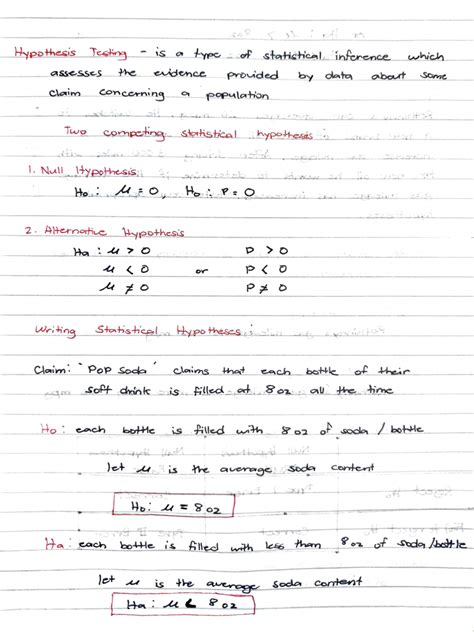 Hypothesis Testing - is a type of statistical inference which
assesses the evidence provided by data about some
claim concerning a population
Two competing statistical hypothesis:
1. Null Hypothesis
Ho : μ = 0, Ho : P = 0
2. Alternative Hypothesis
Ha : μ > 0 P > 0
μ < 0 or P < 0
μ ≠ 0 P ≠ 0
Writing Statistical Hypotheses:
Claim: "POP Soda" claims that each bottle of their
soft drink is filled at 8 oz all the time
Ho : each bottle is filled with 8 oz of soda / bottle
let μ is the average soda content
Ho : μ = 8 oz
Ha : each bottle is filled with less than 8 oz of soda/bottle
let μ is the average soda content
Ha : μ < 8 oz